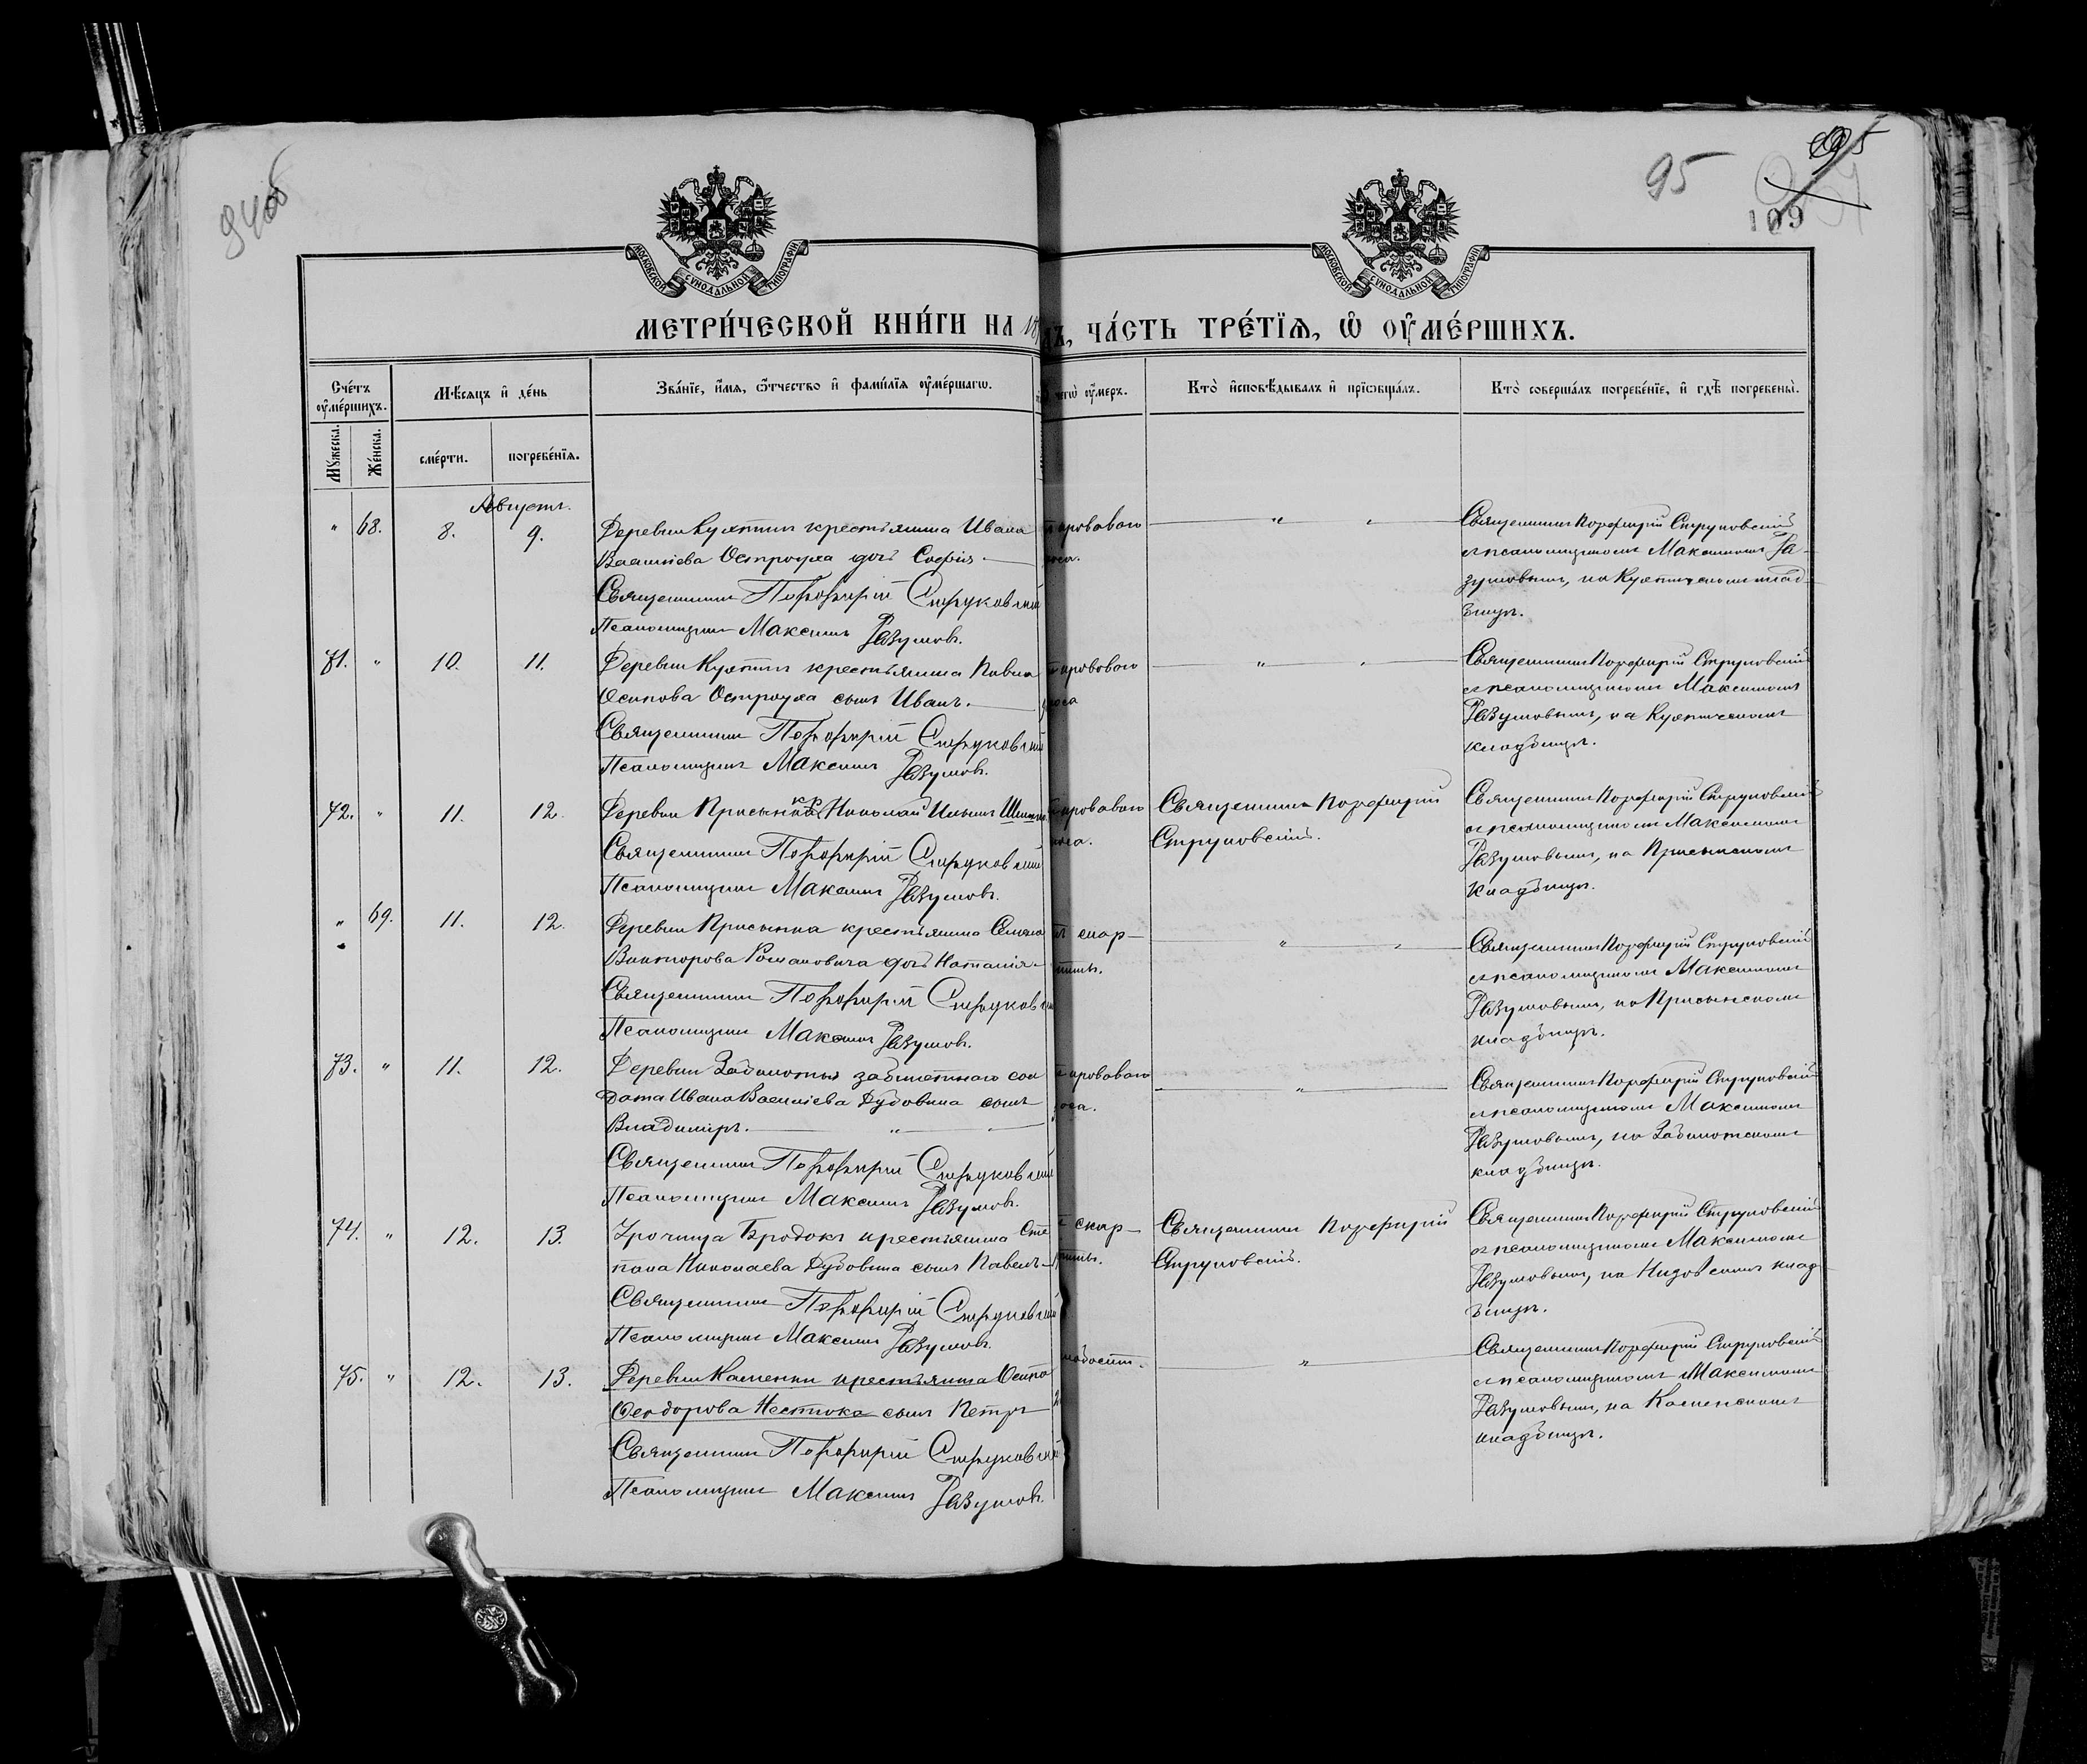 94об
95
109
МОСКОВСКОЙ СѴНОДАЛЬНОЙ ТИПОГРАФІИ
МОСКОВСКОЙ СѴНОДАЛЬНОЙ ТИПОГРАФІИ
МЕТРИ́ЧЕСКОЙ КНИ́ГИ НА 18
ДЪ, ЧА́СТЬ ТРЕ́ТІѦ, Ѽ ОУ҆МЕ́РШИХЪ.
Сче́тъ оу҆ме́ршихъ.
Мѣ́сѧцъ и҆ де́нь
Зва́нїе, и҆́мѧ, ѻ҆́тчество и҆ фами́лїѧ оу҆ме́ршагѡ.
чегѡ̀ оу҆́меръ.
Кто̀ и҆сповѣ́дывалъ и҆ прїѡбща́лъ.
Кто̀ соверша́лъ погребе́нїе, и҆ гдѣ̀ погребены̀.
Мꙋ́жеска.
Же́нска.
сме́рти.
погребе́нїѧ.
Августъ.
" 68. 8. 9. Деревни Кухтичъ крестьянина Ивана
Василіева Остроуха дочь Софія
Священникъ Порфирій Струковскій
Псаломщикъ Максимъ Разумовъ.
кроваваго
носа.
Священникъ Порфирій Струковскій
съ псаломщикомъ Максимомъ Ра-
зумовымъ, на Кухтичскомъ клад-
бищѣ.
71. " 10. 11. Деревни Кухтичъ крестьянина Павла
Осипова Остроуха сынъ Иванъ.
Священникъ Порфирій Струковскій
Псаломщикъ Максимъ Разумовъ.
кроваваго
носа
Священникъ Порфирій Струковскій
съ псаломщикомъ Максимомъ
Разумовымъ, на Кухтичскомъ
кладбищѣ.
72. " 11. 12. Деревни Присынка кр. Николай Ильинъ
Священникъ Порфирій Струковскій
Псаломщикъ Максимъ Разумовъ.
кроваваго
носа.
Священникъ Порфирій
Струковскій.
Священникъ Порфирій Струковскій
съ псаломщикомъ Максимомъ
Разумовымъ, на Присынскомъ
кладбищѣ.
" 69. 11. 12. Деревни Присынка крестьянина Семена
Викторова Романовича дочь Наталія
Священникъ Порфирій Струковскій
Псаломщикъ Максимъ Разумовъ.
скар-
тины.
Священникъ Порфирій Струковскій
съ псаломщикомъ Максимомъ
Разумовымъ, на Присынскомъ
кладбищѣ.
73. " 11. 12. Деревни Заболотья забилетнаго сол
дата Ивана Василіева Дудовича сынъ
Владиміръ.
Священникъ Порфирій Струковскій
Псаломщикъ Максимъ Разумовъ.
кроваваго
носа.
Священникъ Порфирій Струковскій
съ псаломщикомъ Максимомъ
Разумовымъ, на Заболотскомъ
кладбищѣ.
74. " 12. 13. Урочища Бродокъ крестьянина Сте
пана Николаева Дудовича сынъ Павелъ
Священникъ Порфирій Струковскій
Псаломщикъ Максимъ Разумовъ.
скар-
тины.
Священникъ Порфирій
Струковскій.
Священникъ Порфирій Струковскій
съ псаломщикомъ Максимомъ
Разумовымъ, на клад
бищѣ.
75. " 12. 13. Деревни Каменки крестьянина Осипа
Ѳеодорова сынъ Петръ
Священникъ Порфирій Струковскій
Псаломщикъ Максимъ Разумовъ.
Священникъ Порфирій Струковскій
съ псаломщикомъ Максимомъ
Разумовымъ, на Каменскомъ
кладбищѣ.